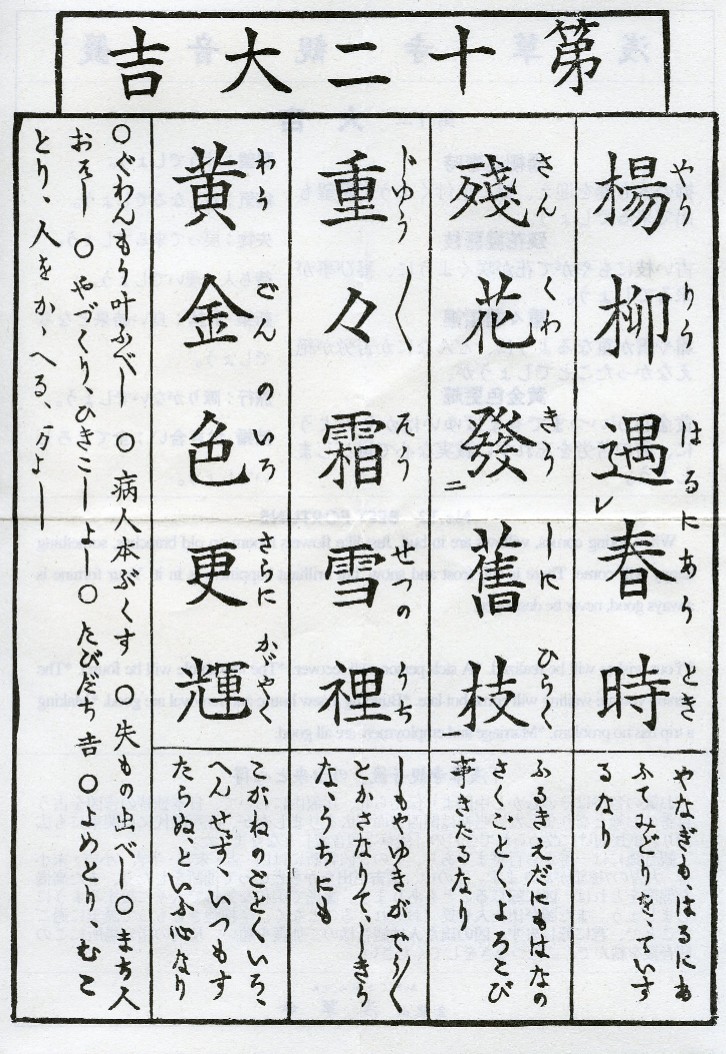 第十二大吉
楊柳遇レ春時
やうりうはるにあうとき
やなぎもはるにあ
ふてみどりを
るなり
殘花發二舊枝
さんくわきうしにひらく
ふるきゑだにもはなの
さくごとくよろこび
事きたるな
重々霜雪裡
じゆう〱さうせつのうち
しもやゆきが
とかさなつて
うちにも
黄金色更輝
わうごんのいろさらにかがやく
こがねのごとくいろ、
へんせず、いつもす
たらぬ、いふ心なり
○ぐわんもう叶ふべし 病人本ぶくす ○失もの出べし○まち人
おそし ○やづくり、ひきこしよし ○たびだち吉 ○よめとり むこ
とり、人をかゝへる、万よし